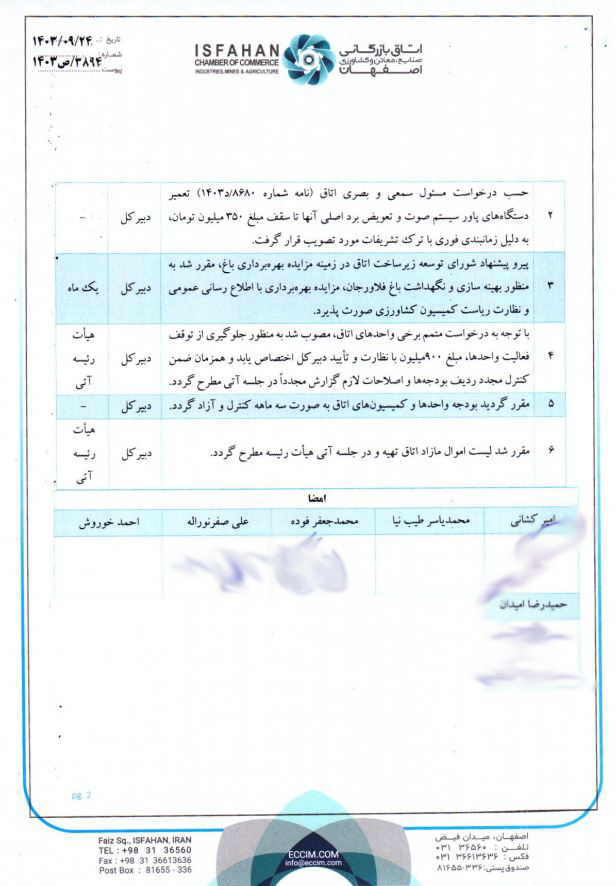 تاریخ : ۱۴۰۳/۰۹/۲۴
شماره: ۳۸۹۴/ص۱۴۰۳
پیوست:
ISFAHAN
CHAMBER OF COMMERCE
INDUSTRIES, MINES & AGRICULTURE
اتاق بازرگانی
صنایع، معادن و کشاورزی
اصفهان
حسب درخواست مسئول سمعی و بصری اتاق (نامه شماره ۸۶۸۰/د۱۴۰۳) تعمیر
۲ دستگاه‌های پاور سیستم صوت و تعویض برد اصلی آنها تا سقف مبلغ ۳۵۰ میلیون تومان، دبیر کل –
به دلیل زمانبندی فوری با ترک تشریفات مورد تصویب قرار گرفت.
پیرو پیشنهاد شورای توسعه زیرساخت اتاق در زمینه مزایده بهره‌برداری باغ، مقرر شد به
۳ منظور بهینه سازی و نگهداشت باغ فلاورجان، مزایده بهره‌برداری با اطلاع رسانی عمومی دبیر کل یک ماه
و نظارت ریاست کمیسیون کشاورزی صورت پذیرد.
با توجه به درخواست متمم برخی واحدهای اتاق، مصوب شد به منظور جلوگیری از توقف هیأت
۴ فعالیت واحدها، مبلغ ۹۰۰میلیون با نظارت و تأیید دبیر کل اختصاص یابد و همزمان ضمن دبیر کل رئیسه
کنترل مجدد ردیف بودجه‌ها و اصلاحات لازم گزارش مجدداً در جلسه آتی مطرح گردد. آتی
۵ مقرر گردید بودجه واحدها و کمیسیون‌های اتاق به صورت سه ماهه کنترل و آزاد گردد. دبیر کل –
هیأت
۶ مقرر شد لیست اموال مازاد اتاق تهیه و در جلسه آتی هیأت رئیسه مطرح گردد. دبیر کل رئیسه
آتی
امضا
امیر کشانی محمدیاسر طیب نیا محمدجعفر فوده علی صفرنوراله احمد خوروش
حمیدرضا امیدان
pg. 2
Faiz Sq., ISFAHAN, IRAN
TEL : +98 31 36560
Fax : +98 31 36613636
Post Box : 81655 - 336
ECCIM.COM
info@eccim.com
اصفهان، میدان فیض
تلفن : ۳۶۵۶۰ ۰۳۱
فکس : ۳۶۶۱۳۶۳۶ ۰۳۱
صندوق پستی: ۳۳۶-۸۱۶۵۵